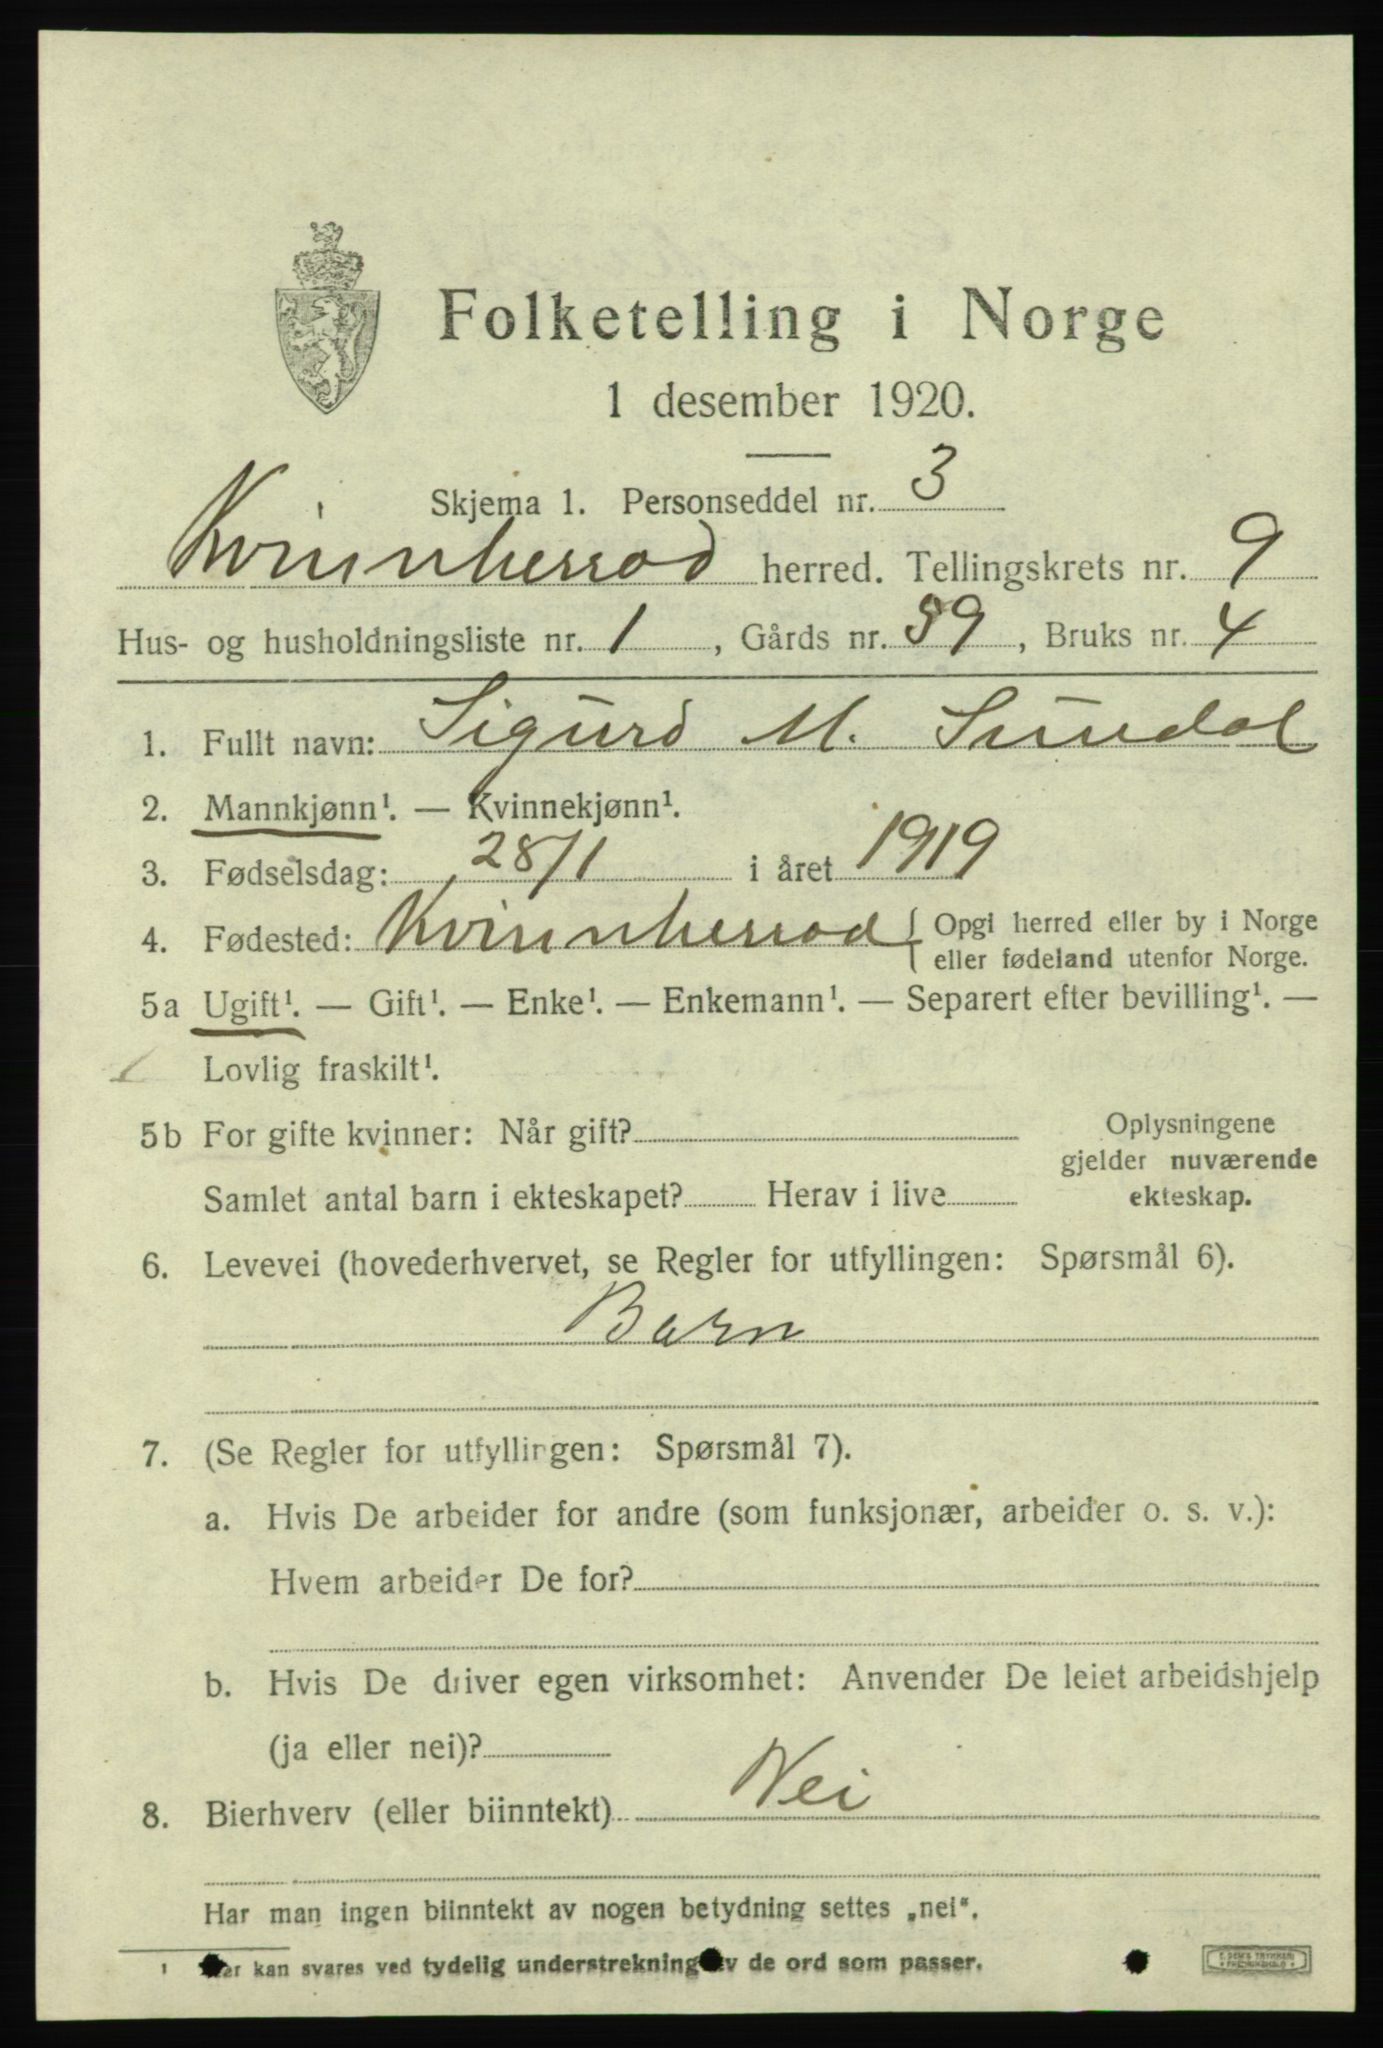 Folketelling i Norge
1 desember 1920.
Skjema 1. Personseddel nr. 3
Kvinnherrad herred. Tellingskrets nr. 9
Hus- og husholdningsliste nr. 1, Gårds nr. 59, Bruks nr. 4
1. Fullt navn: Sigurd M. Sundal
2. Mannkjønn¹. — Kvinnekjønn¹.
3. Fødselsdag: 28/1 i året 1919
4. Fødested: Kvinnherrad { Opgi herred eller by i Norge
eller fødeland utenfor Norge.
5a Ugift¹. — Gift¹. — Enke¹. — Enkemann¹. — Separert efter bevilling¹. —
Lovlig fraskilt¹.
5b For gifte kvinner: Når gift?
Samlet antal barn i ekteskapet? Herav i live
Oplysningene
gjelder nuværende
ekteskap.
6. Levevei (hovederhvervet, se Regler for utfyllingen: Spørsmål 6).
Barn
7. (Se Regler for utfyllingen: Spørsmål 7).
a. Hvis De arbeider for andre (som funksjonær, arbeider o. s. v.):
Hvem arbeider De for?
b. Hvis De driver egen virksomhet: Anvender De leiet arbeidshjelp
(ja eller nei)?
8. Bierhverv (eller biinntekt) Nei
Har man ingen biinntekt av nogen betydning settes „nei".
¹ Her kan svares ved tydelig understrekning av de ord som passer.